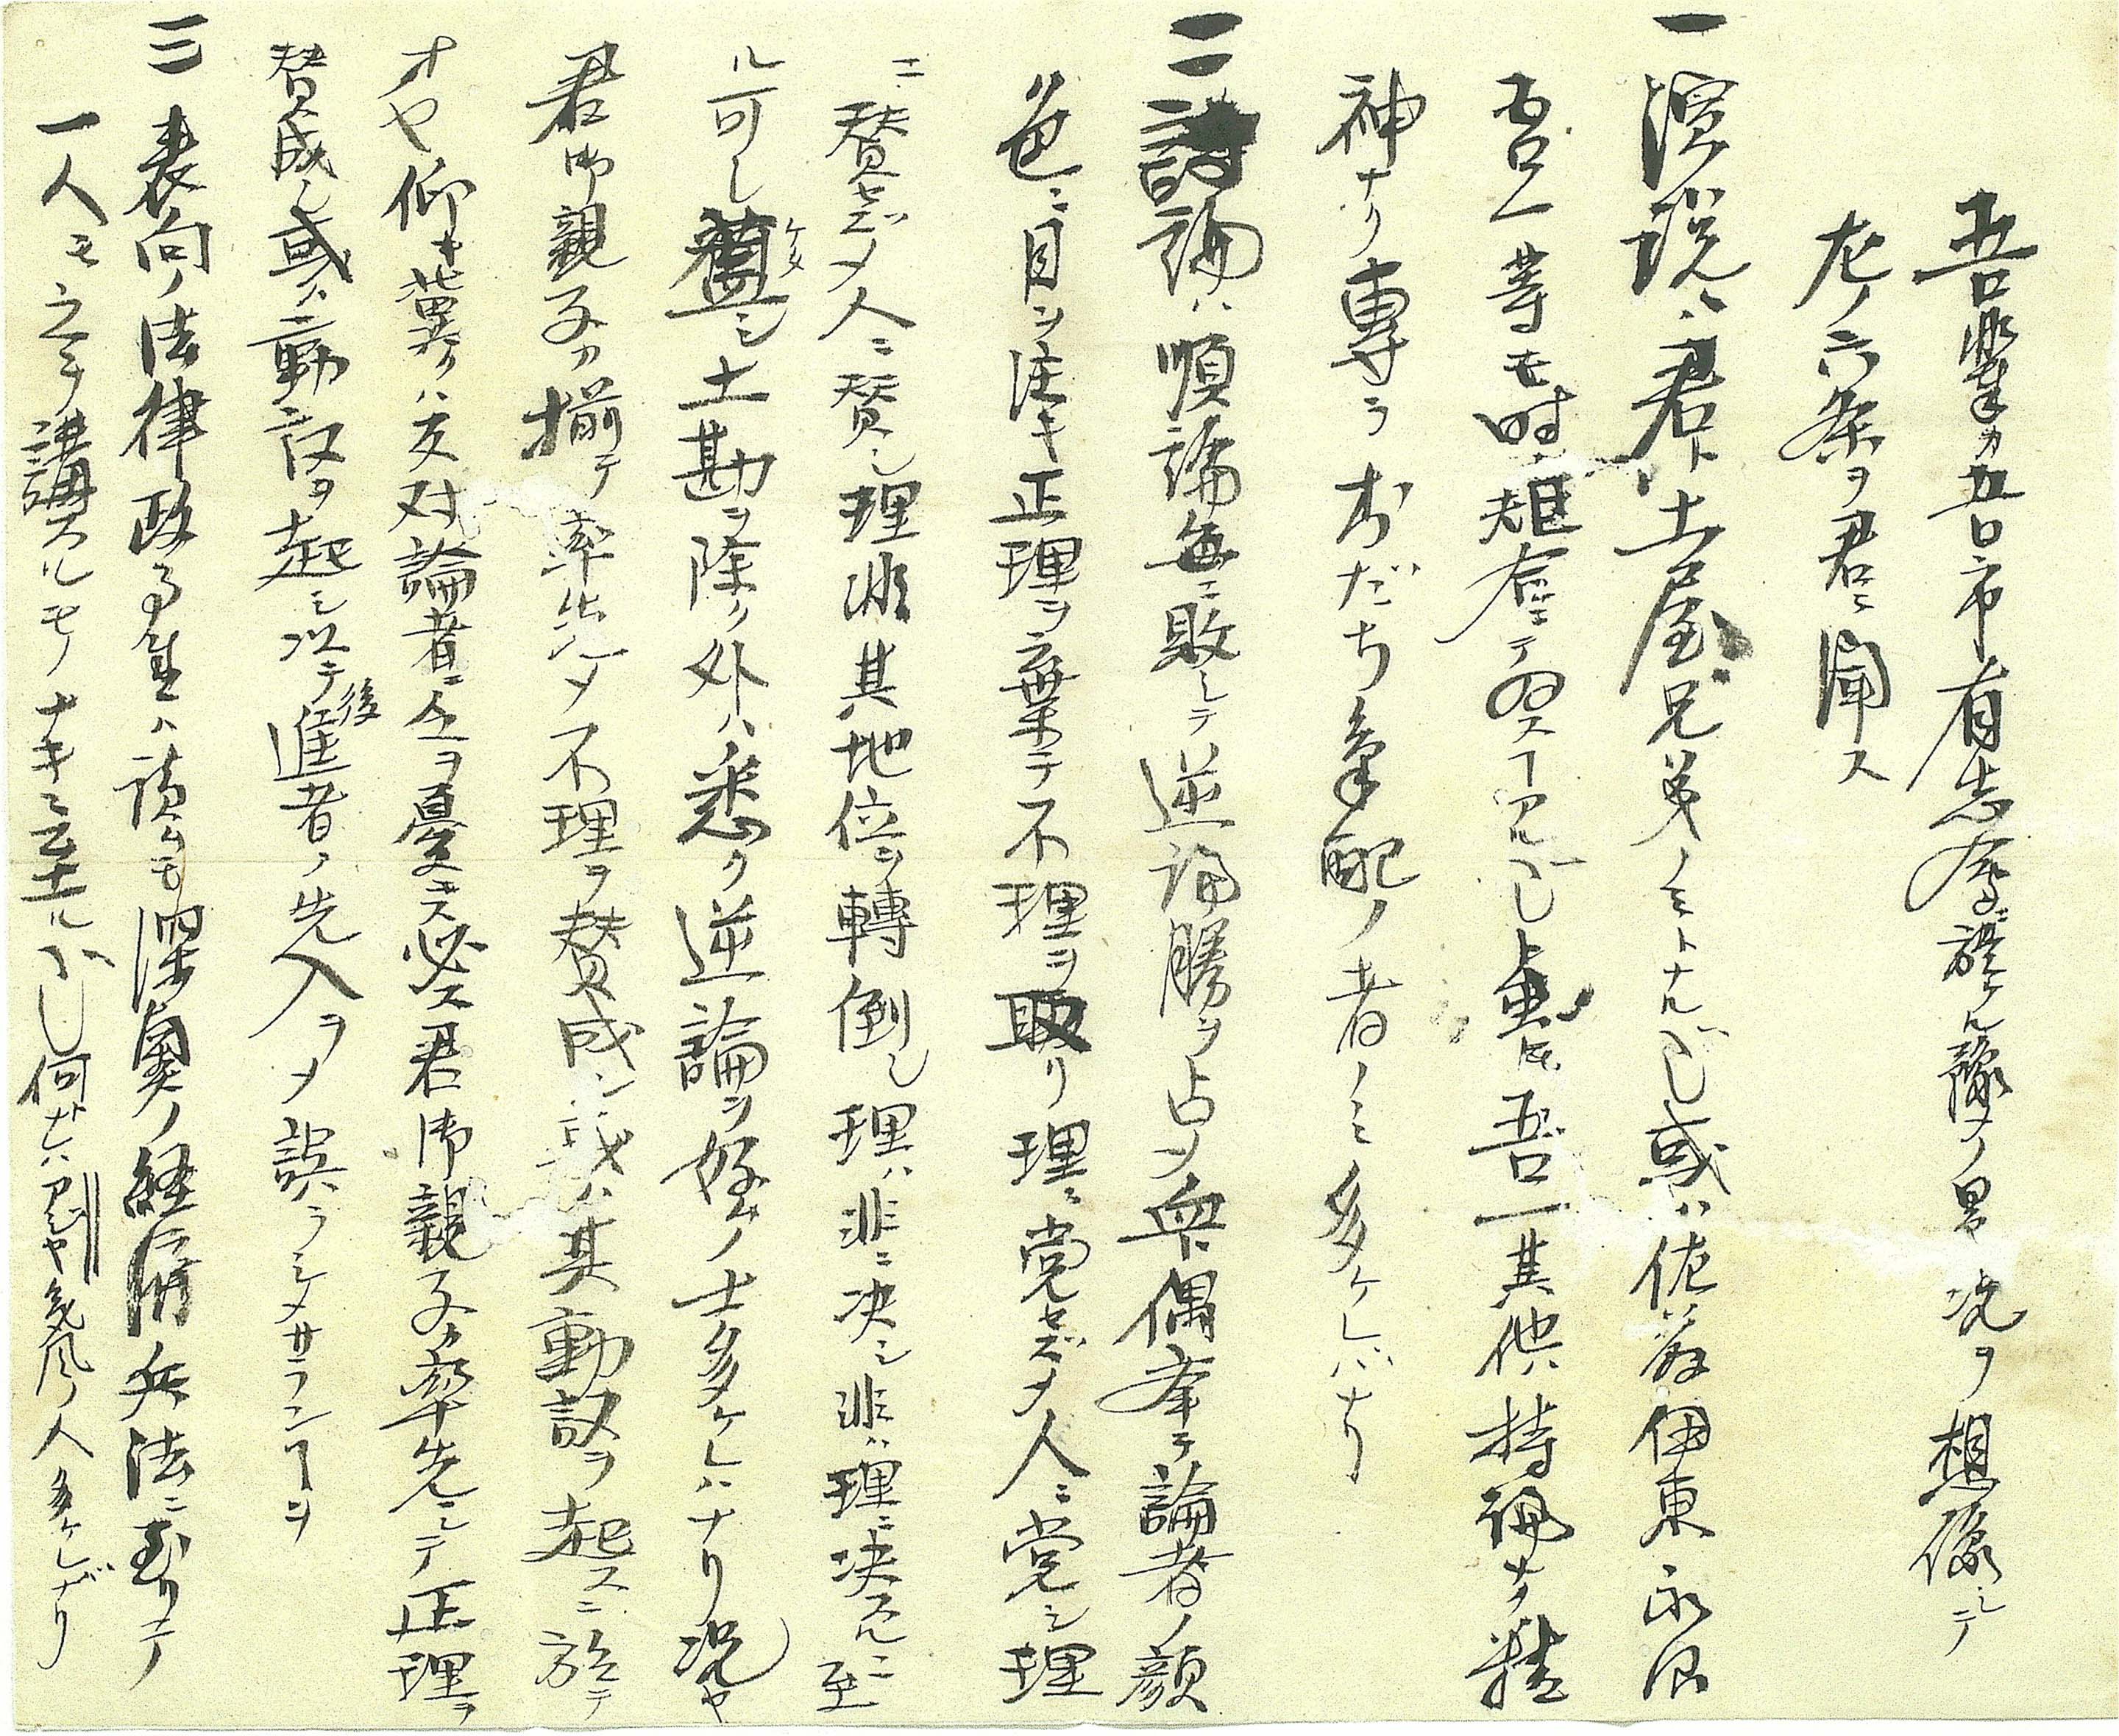 吾輩カ五日市有志ガ於ル歿メノ景況ヲ想像シテ
左ノ六条ヲ君ニ聞ス
一 演説ハ君ト土屋兄弟ノミトナルベシ或ハ佐藤伊東永沼
吾一等モ時ニ短席ニテ為スヿアルベシト雖氏吾一其他持論ナク精
神ナク専ラおだち気配ノ者ノミ多ケレバナリ
二 討論ハ順論毎ニ敗シテ逆論勝ヲ占メ無偶挙テ論者ノ顔
色ニ目ヲ注キ正理ヲ棄テ不理ヲ取リ理ニ党セズメ人ニ党シ理
ニ賛セズメ人ニ賛シ理非其地位ヲ轉倒シ理ハ非ニ決シ非ハ理ニ決スルニ至
ル可し蓋シ土勘ヲ除ク外ハ悉ク逆論ヲ好ムノ士多ケレハナリ況ヤ
君御親子カ揃テ率先シメ不理ヲ賛成シ或ハ其動議ヲ起スニ於テ
オヤ仰キ冀クハ反対論者ニ乏ヲ憂ス必ス君御親子カ率先シテ正理ヲ
賛成シ或ハ動議ヲ起シ以テ後進者ノ先入ヲメ誤ラシメサランヿヲ
三 表向ノ法律政事ハ読クモ深奥ノ経済兵法ニ至リテ
一人モ之ヲ講スルモノナキニ至ルベし何ナレハ気風ノ人多ケレバナリ